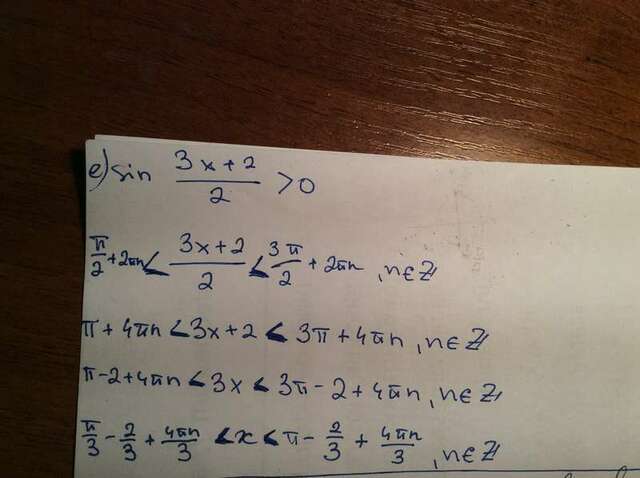 е) sin (3x+2)/2 > 0
π/2 + 2πn < (3x+2)/2 < 3π/2 + 2πn, n∈Z
π + 4πn < 3x+2 < 3π + 4πn, n∈Z
π-2+4πn < 3x < 3π-2+4πn, n∈Z
π/3 - 2/3 + 4πn/3 < x < π - 2/3 + 4πn/3, n∈Z